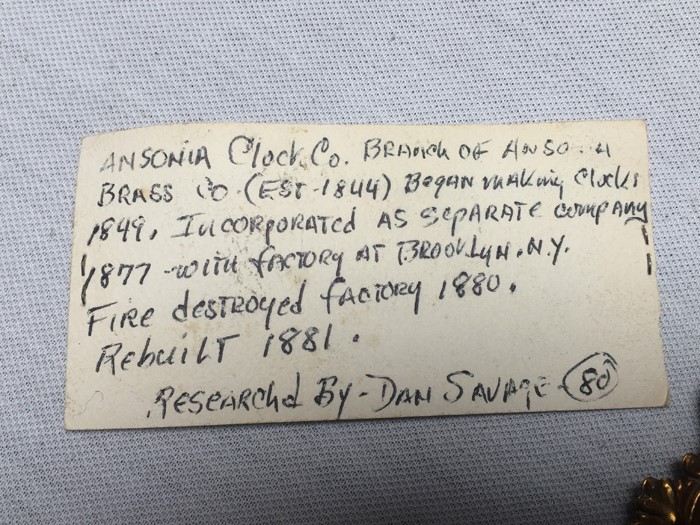 ANSONIA Clock Co. BRANCH OF ANSONIA
BRASS CO (EST-1844) Began making Clocks
1849, INCORPORATED AS SEPARATE company
1877 -with factory AT BROOKLYN. N.Y.
FIRE destroyed factory 1880.
RebuilT 1881.
RESEARChd By - DAN SAVAGE - 80